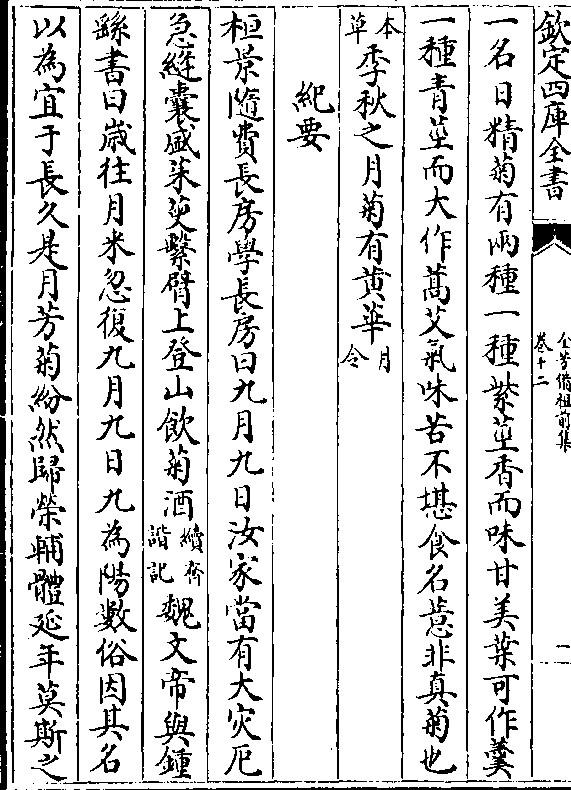 欽定四庫全書
全芳備祖前集
卷十二
一
一名日精菊有兩種一種紫莖香而味甘美葉可作羹
一種青莖而大作蒿艾氣味苦不堪食名薏非真菊也
本草季秋之月菊有黄華月令
紀要
桓景隨費長房學長房曰九月九日汝家當有大灾厄
急縫囊盛茱萸繫臂上登山飲菊酒續齊諧記魏文帝與鍾
繇書曰嵗往月来忽復九月九日九為陽數俗因其名
以為宜于長久是月芳菊紛然歸榮輔體延年莫斯之